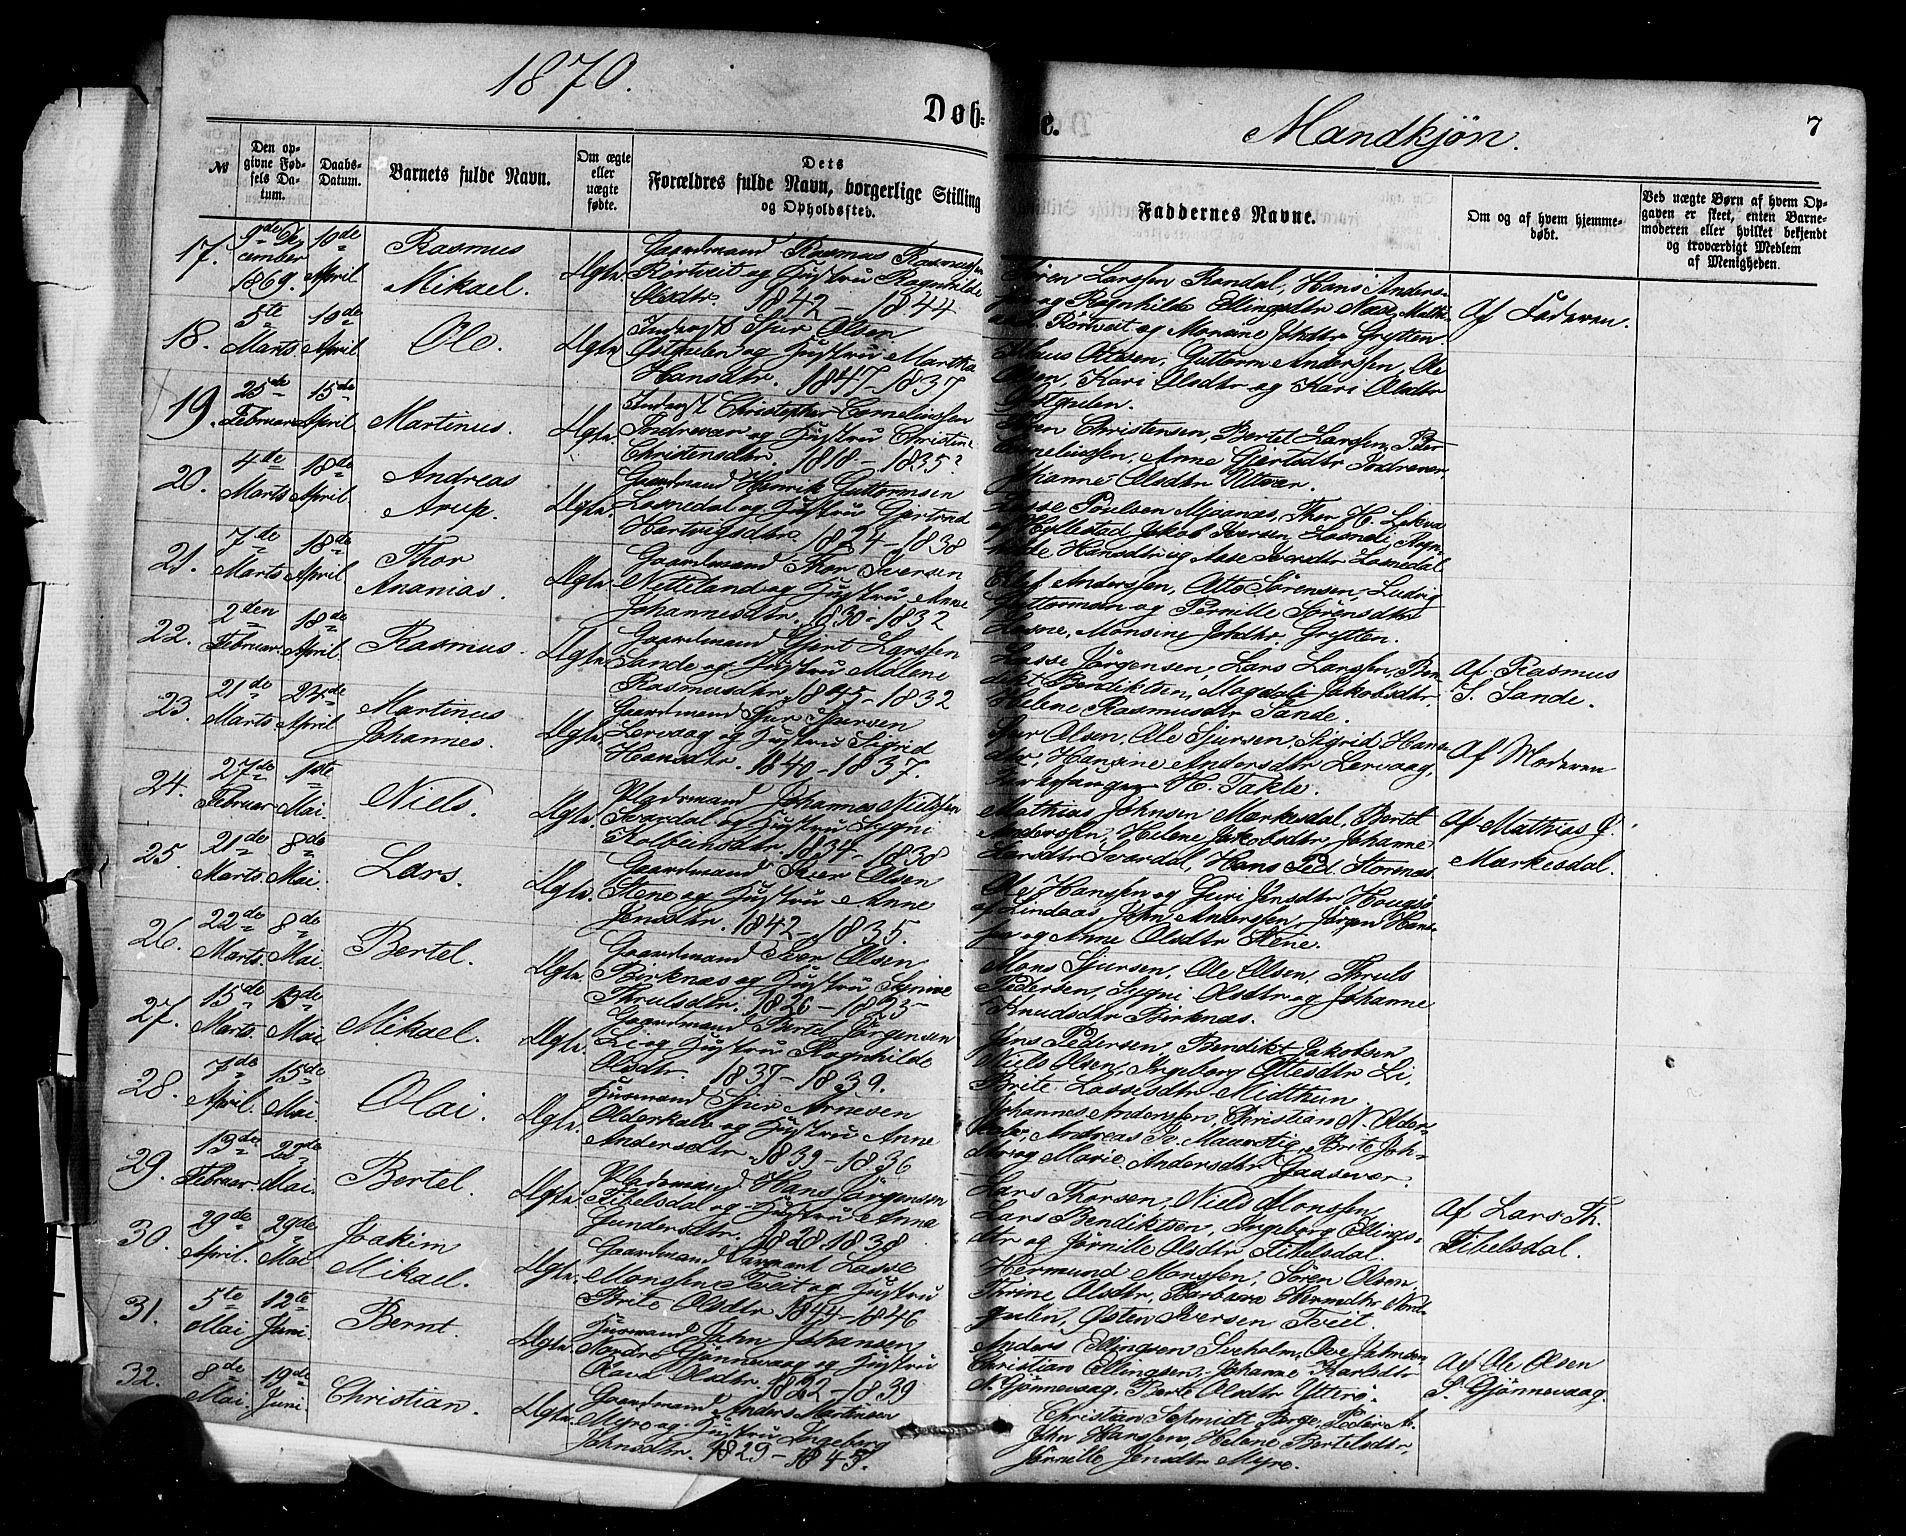 1870.
Døb= e.
Mandkjøn.
7
№
Den op-
givne Fød-
sels Da-
tum.
Daabs-
Datum.
Barnets fulde Navn.
Om ægte
eller
uægte
fødte.
Dets
Forældres fulde Navn, borgerlige Stilling
og Opholdssted.
Faddernes Navne.
Om og af hvem hjemme-
døbt.
Ved uægte Børn af hvem Op-
gaven er skeet, enten Barne-
moderen eller hvilket bekjendt
og troværdigt Medlem
af Menigheden.
17. 9de De
cember
1869. 10de
April Rasmus
Mikael. Ægte. Gaardmand Rasmus Rasmussen
Rörtveit og Hustru Ragnhilde
Olsdtr. 1842 - 1844
Sören Larssen Rendal, Hans Anders-
og Ragnhilde Ellingsdtr Nese,
Rörtveit og Monsine Johdtr Grytten.
Af Faderen.
18. 5te
Marts 10de
April Ole. Ægte Inderst Sjur Olsen
Östgulen og Hustru Martha
Hansdtr. 1847-1837
Ottesen, Guttorm Anderssen, Ole
Olsen, Kari Olsdtr og Kari Olsdtr
Östgulen.
19. 25de
Februar 15de
April Martinus. Ægte. Inderst Christopher Corneliussen
Indrevær og Hustru Christine
Christensdtr. 1818 - 1835?
Christensen, Bertel Larssen, Peter
Corneliussen, Anne Gjertsdtr Indrevær,
Johanne Olsdtr Utvær.
20. 4de
Marts 18de
April Andreas
Arup. Ægte. Gaardmand Henrik Guttormsen
Losnedal og Hustru Gjertrud
Hartvigsdtr. 1824-1838
Lasse Poulsen Mjaanes, Thor H. Lekva
af Hyllestad Jakob Iversen Losnedal,
Hansdtr og Aase Iversdtr Losnedal
21. 7de
Marts 18de
April Thor
Ananias. Ægte. Gaardmand Thor Iversen
Nitteland og Hustru Anne
Johannesdtr. 1830-1832
Anderssen, Otto Sörensen, Ludvig
Guttormsen og Pernille Sörensdtr
Losne, Monsine Johdtr. Grytten.
22. 2den
Februar 18de
April. Rasmus. Ægte. Gaardmand Gjert Larssen
Sande og Hustru Malene
Rasmusdtr. 1845-1832
Lasse Jörgensen, Lars Larssen, Ben-
dikt Bendiktsen, Magdali Jakobsdtr.
Helene Rasmusdtr Sande.
Af Rasmus
S. Sande.
23. 21de
Marts 24de
April Martinus
Johannes. Ægte. Gaardmand Sjur Sjursen
Lervaag og Hustru Sigrid
Hansdtr. 1840-1837.
Sjur Olsen, Ole Sjursen, Sigrid Hans-
dtr, Hansine Andersdtr Lervaag,
H. Takle.
Af Moderen
24. 27de
Februar 1ste
Mai. Niels. Ægte. Pladsmand Johannes Nielssen
Svardal og Hustru Sygni
Kolbeinsdtr. 1834-1838
Mathias Johnsen Markesdal, Bertel
Anderssen, Helene Jakobsdtr, Johanne
Larsdtr Svardal, Hans Ped. Storenæs.
Af Mathias J.
Markesdal.
25. 21de
Marts. 8de
Mai. Lars. Ægte. Gaardmand Iver Olsen
Stene og Hustru Anne
Jensdtr. 1842-1835.
Ole Hanssen og Guri Jensdtr Hougsö
af Lindaas, John Anderssen, Jörgen Hans-
sen og Anne Olsdtr Stene.
26. 22de
Marts. 8de
Mai. Bertel. Ægte. Gaardmand Iver Olsen
Birknæs og Hustru
Thrulsdtr. 1826-1825
Mons Sjursen, Ole Olsen, Thruls
Pedersen, Sygni Olsdtr og Johanne
Knudsdtr Birknæs.
27. 15de
Marts.
Mai Mikael. Ægte. Gaardmand Bertel Jörgensen
Li og Hustru Ragnhilde
Olsdtr. 1837-1839.
Jens Pedersen, Bendikt Jakobsen
Niels Olsen, Ingeborg Ottesdtr Li,
Brite Lassesdtr Midthun.
28. 7de
April. 15de
Mai. Olai. Ægte. Husmand Sjur Arnesen
Olderkalv og Hustru Anne
Andersdtr. 1839-1836
Johannes Anderssen, Christian N. Older-
kalv, Andreas Mauerstig, Brite Joh-
dtr og Marie Andersdtr Gaasevær.
29. 13de
Februar
Mai. Bertel. Ægte. Pladsmand Hans Jörgensen
Tibelsdal og Hustru Anna
Gundersdtr. 1828-1838
Lars Thorsen, Niels Monssen,
Lars Bendiktsen, Ingeborg Ellings-
dtr og Jörnille Olsdtr Tibelsdal.
Af Lars Th.
Tibelsdal.
30. 29de
April. 29de
Mai Joakim
Mikael. Ægte. Gaardmand Lasse
Monssen Tveit og Hustru
Brite Olsdtr. 1844-1846
Hermund Monssen, Sören Olsen,
Thrine Olsdtr, Barbara Hermdtr Nord-
gulen, Östen Iversen Tveit.
31. 5te
Mai 12te
Juni. Bernt. Ægte. Husmand John Johansen
Nordre Gjönnevaag og Hustru
Olava Olsdtr. 1822-1839
Anders Ellingsen Sveholm, Ove Johnsen
Christian Ellingsen, Johanne Karlsdtr
N. Gjönnevaag, Berte Olsdtr Ytterö.
Af Ole Olsen
S. Gjönnevaag.
32. 8de
Mai. 19de
Juni. Christian. Ægte. Gaardmand Anders Martinsen
Myre og Hustru Ingeborg
Johnsdtr. 1829-1843.
Christian Schmidt Berge, Peder A.
John Hanssen, Helene Bertelsdtr,
Jörnille Jensdtr Myre.